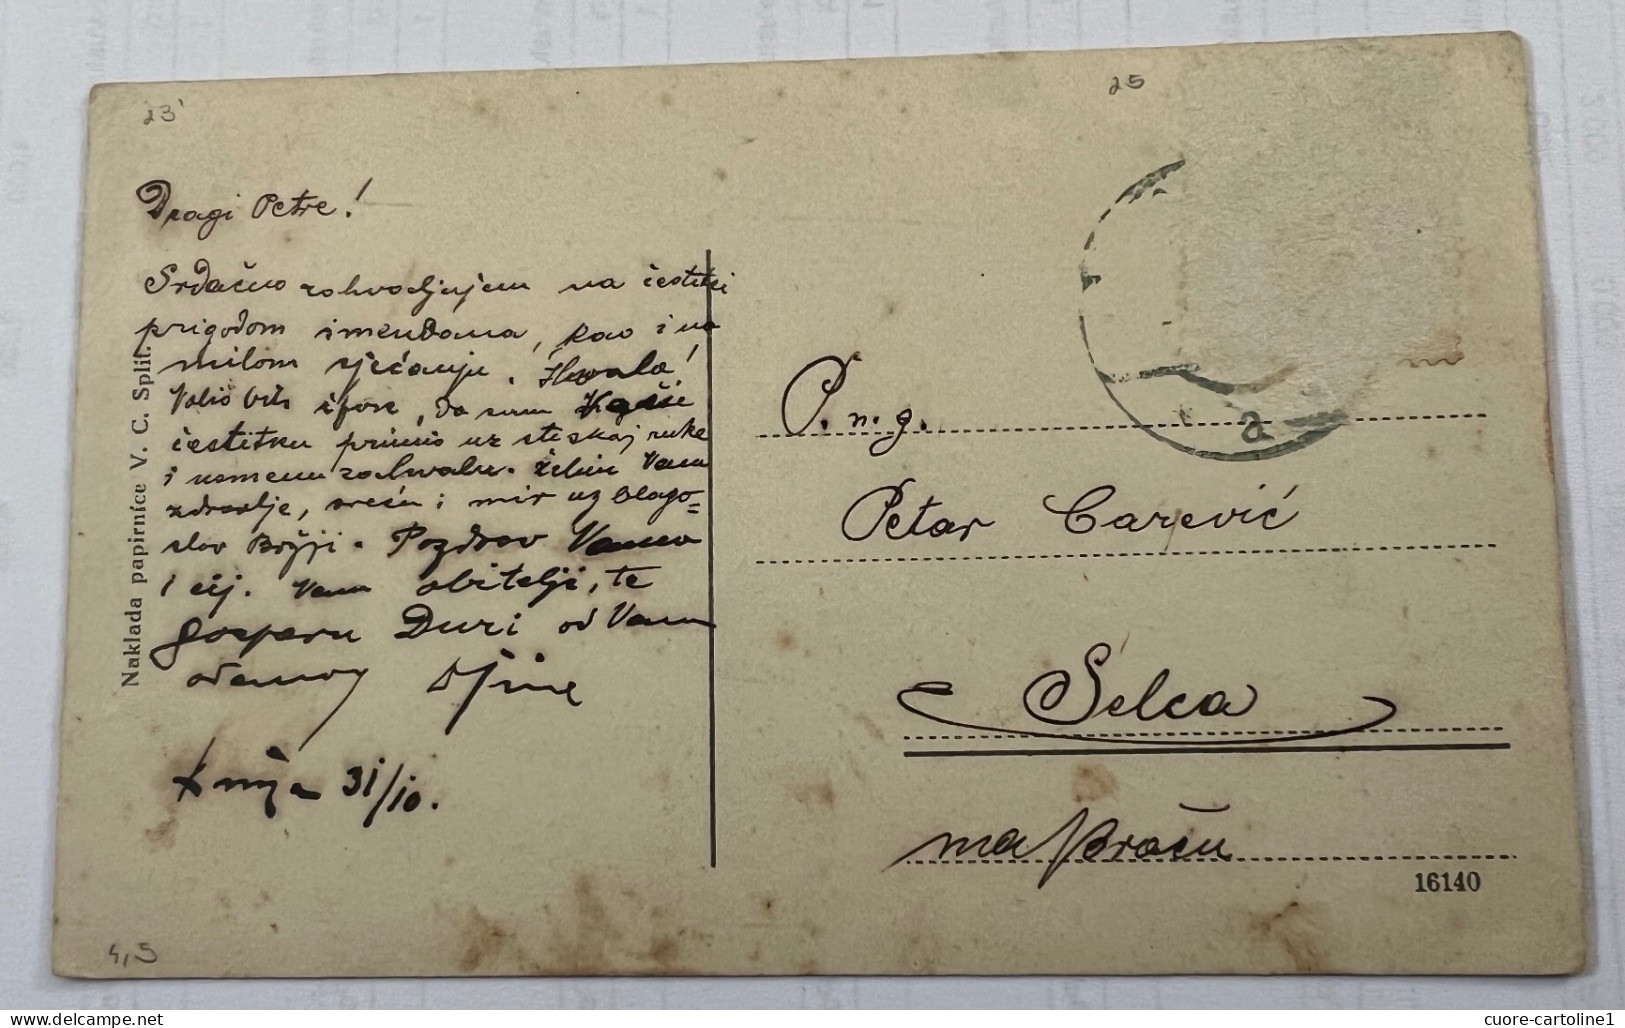 23'
25
Dragi Petre!
Srdačno zahvaljujem na čestitci
prigodom imendana, kao i na
milom sjećanju. Hvala!
da sam Vaši
čestitku primio uz stiskaj ruke
i usmenu zahvalu. Želim Vam
zdravlje, sreću i mir uz blago=
slov Božji. Pozdrav Vama
i cij. Vam obitelji, te
gosparu Duri od Vam
odanog
31/10.
Nakladna papirnice V. C. Split.
P. n. g.
Petar Carević
Selca
na Braču
16140
a
4,5
cuore-cartoline1
delcampe.net